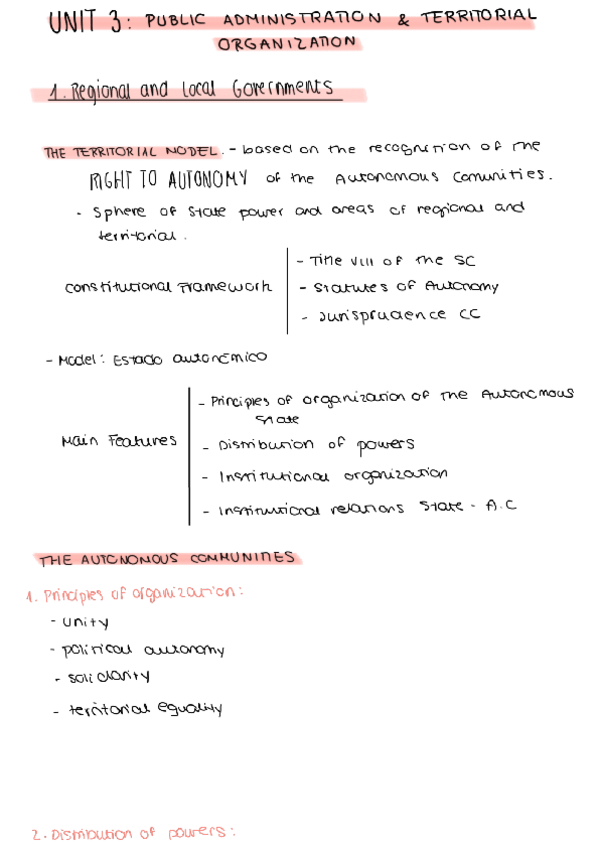 UNIT 3: PUBLIC ADMINISTRATION & TERRITORIAL
ORGANIZATION
1. Regional and Local Governments
THE TERRITORIAL MODEL. - based on the recognition of the
RIGHT TO AUTONOMY of the Autonomous Comunities.
- Sphere of state power and areas of regional and
territorial.
Constitutional Framework
- Title VIII of the SC
- Statutes of Autonomy
- Jurisprudence CC
- Model: Estado autonómico
Main Features
- Principles of organization of the Autonomous
State
- Distribution of powers
- Institutional organization
- Institutional relations State - A.C
THE AUTONOMOUS COMMUNITIES
1. Principles of organization:
- unity
- political autonomy
- solidarity
- territorial equality
2. Distribution of powers: